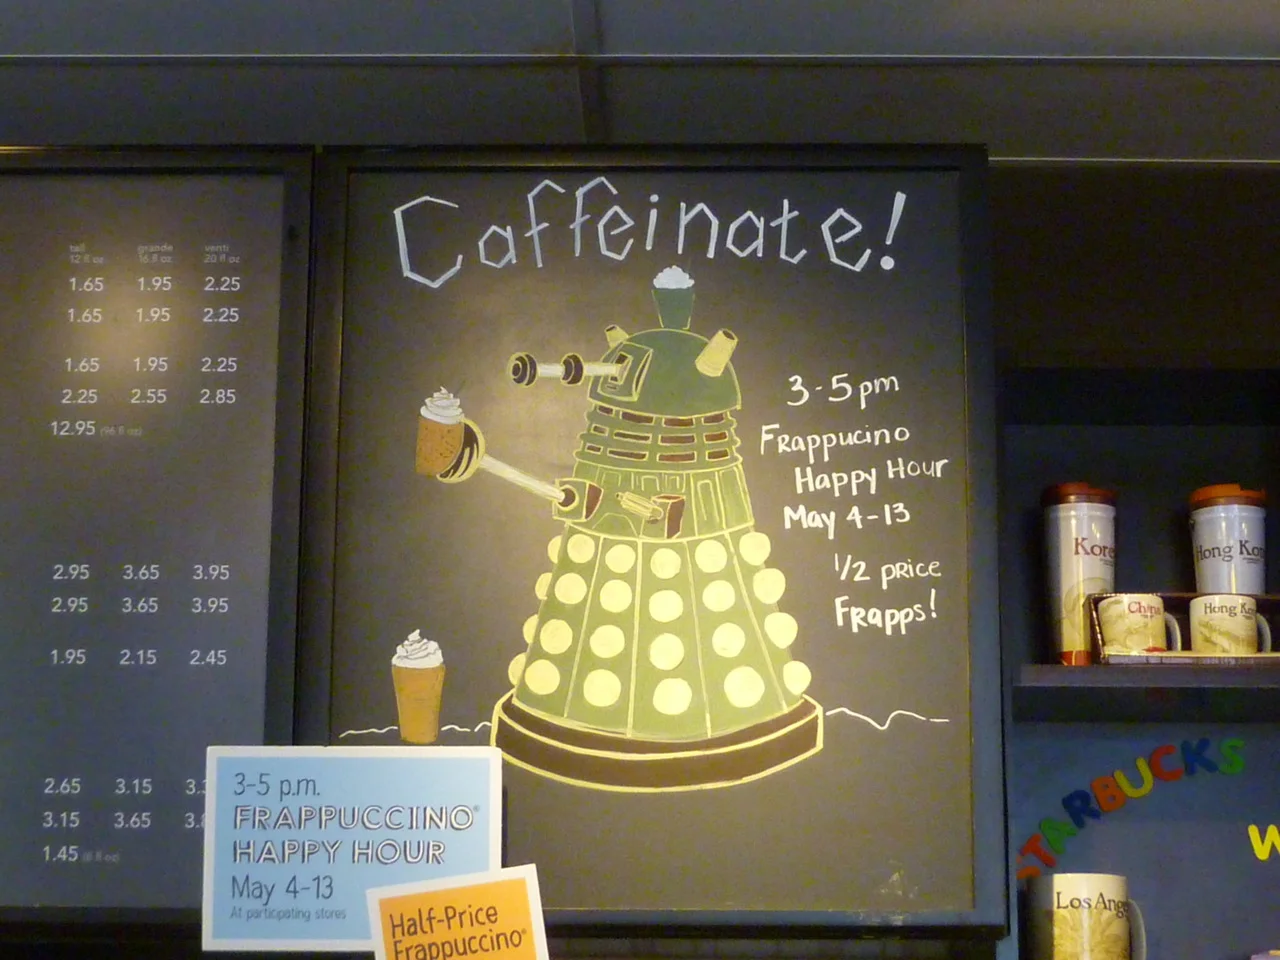 tall grande venti
12 fl oz 16 fl oz 20 fl oz
1.65 1.95 2.25
1.65 1.95 2.25
1.65 1.95 2.25
2.25 2.55 2.85
12.95 (96 fl oz)
2.95 3.65 3.95
2.95 3.65 3.95
1.95 2.15 2.45
2.65 3.15
3.15 3.65
1.45 (8 fl oz)
Caffeinate!
3-5pm
Frappucino
Happy Hour
May 4-13
1/2 price
Frapps!
3-5 p.m.
FRAPPUCCINO®
HAPPY HOUR
May 4-13
At participating stores
Half-Price
Frappuccino®
Kore
Hong Kon
China
Hong Ko
STARBUCKS
W
Los Ang